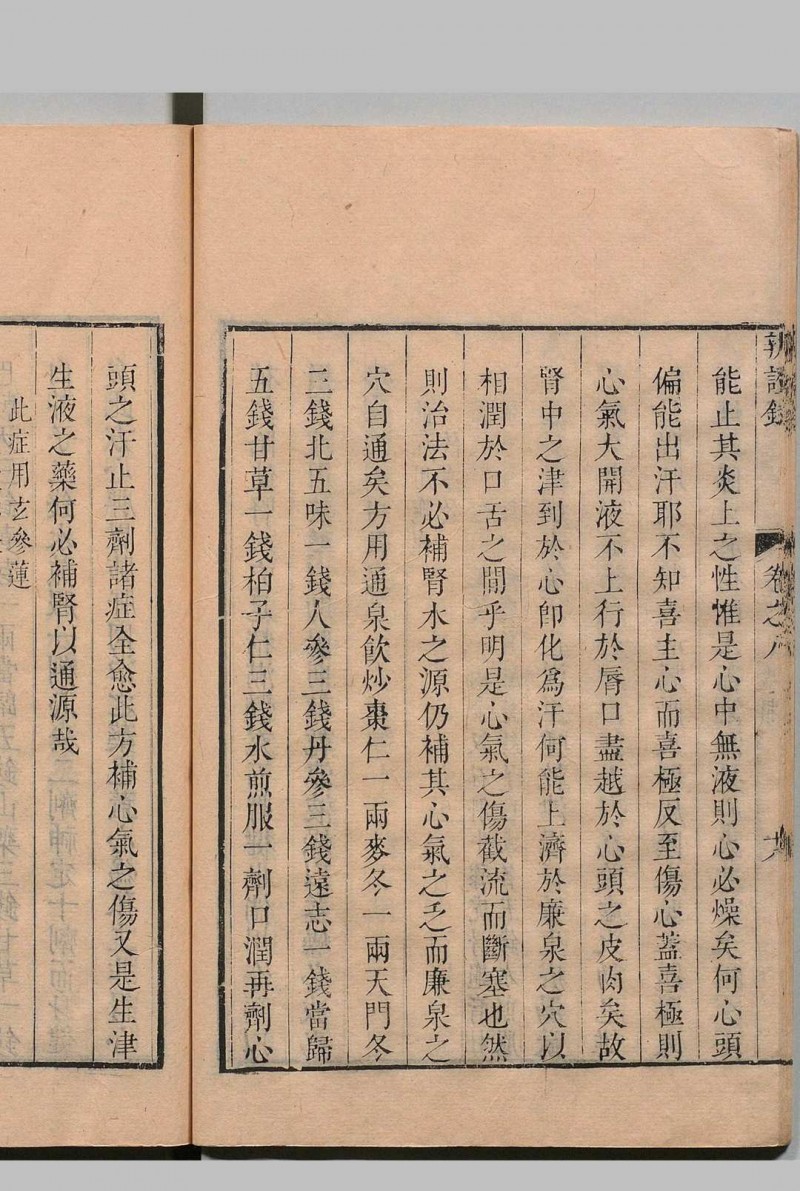 辨證錄 卷之八
能止其炎上之性惟是心中無液則心必燥矣何心頭
偏能出汗耶不知喜主心而喜極反至傷心蓋喜極則
心氣大開液不上行於脣口盡越於心頭之皮肉矣故
腎中之津到於心卽化為汗何能上濟於廉泉之穴以
相潤於口舌之閒乎明是心氣之傷截流而斷塞也然
則治法不必補腎水之源仍補其心氣之乏而廉泉之
穴自通矣方用通泉飲炒棗仁一兩麥冬一兩天門冬
三錢北五味一錢人參三錢丹參三錢遠志一錢當歸
五錢甘草一錢柏子仁三錢水煎服一劑口潤再劑心
頭之汗止三劑諸症全愈此方補心氣之傷又是生津
生液之藥何必補腎以通源哉
此症用玄參蓮